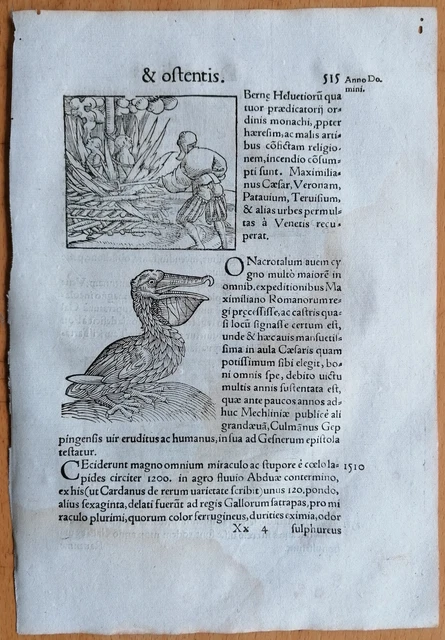 & ostentis. 515 Anno Do
mini.
Bernę Heluetiorū qua
tuor prædicatorij or-
dinis monachi, ppter
hæresim, ac malis arti-
bus cōfictam religio-
nem, incendio cōsum-
pti sunt. Maximilia-
nus Cæsar, Veronam,
Patauium, Teruisum,
& alias urbes permul-
tas à Venetis recu-
perat.
ONacrotalum auem cy
gno multò maiorē in
omnib. expeditionibus Ma
ximiliano Romanorum re-
gi præcessisse, ac castris qua-
si locū signasse certum est,
unde & hæc auis mansuetis-
sima in aula Cæsaris quam
potissimum sibi elegit, bo-
ni omnis spe, debito uictu
multis annis sustentata est,
quæ ante paucos annos ad-
huc Mechliniæ publicè ali
grandæuā, Culmānus Gep
pingensis uir eruditus ac humanus, in sua ad Gesnerum epistola
testatur.
CEciderunt magno omnium miraculo ac stupore è cœlo la- 1510
pides circiter 1200. in agro fluuio Abduæ contermino,
ex his (ut Cardanus de rerum uarietate scribit) unus 120. pondo,
alius sexaginta, delati fuerūt ad regis Gallorum satrapas, pro mi
raculo plurimi, quorum color ferrugineus, durities eximia, odor
Xx 4 sulphureus